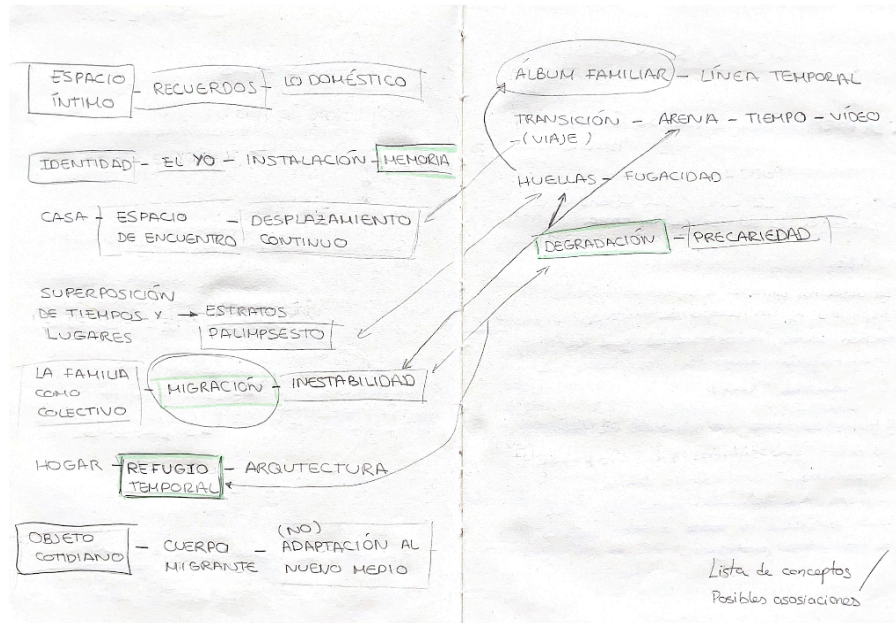 ESPACIO
ÍNTIMO - RECUERDOS - LO DOMÉSTICO
IDENTIDAD - EL YO - INSTALACIÓN - MEMORIA
CASA - ESPACIO
DE ENCUENTRO - DESPLAZAMIENTO
CONTINUO
SUPERPOSICIÓN
DE TIEMPOS Y → ESTRATOS
LUGARES PALIMPSESTO
LA FAMILIA
COMO
COLECTIVO - MIGRACIÓN - INESTABILIDAD
HOGAR - REFUGIO
TEMPORAL - ARQUTECTURA
OBJETO
COTIDIANO - CUERPO
MIGRANTE - (NO)
ADAPTACIÓN AL
NUEVO MEDIO
ÁLBUM FAMILIAR - LÍNEA TEMPORAL
TRANSICIÓN - ARENA - TIEMPO - VÍDEO
- (VIAJE)
HUELLAS - FUGACIDAD
DEGRADACIÓN - PRECARIEDAD
Lista de conceptos /
Posibles asosiaciones